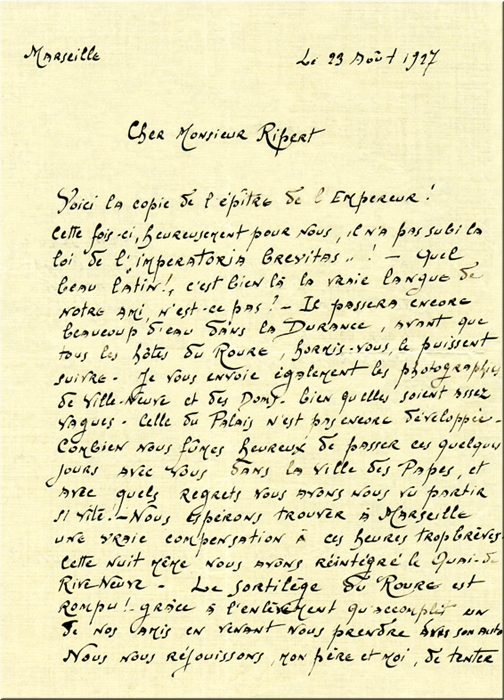 Marseille
Le 23 Août 1927
Cher Monsieur Ripert
Voici la copie de l'épître de l'Empereur !
Cette fois-ci, heureusement pour nous, il n'a pas subi la
loi de l'"imperatoria brevitas".. ! — Quel
beau latin !, c'est bien là la vraie langue de
notre ami, n'est-ce pas ? — Il passera encore
beaucoup d'eau dans la Durance, avant que
tous les hôtes du Roure, hormis-vous, le puissent
suivre - Je vous envoie également les photographies
de Ville-Neuve et des Doms - bien quelles soient assez
vagues - Celle du Palais n'est pas encore développée -
Combien nous fûmes heureux de passer ces quelques
jours avec vous dans la ville des Papes, et
avec quels regrets nous avons nous vu partir
si vite ! - Nous espérons trouver à Marseille
une vraie compensation à ces heures trop brèves
Cette nuit même nous avons réintégré le Quai-de
Rive Neuve - Le sortilège du Roure est
rompu ! - grâce à l'enlèvement qu'accomplit un
de nos amis en venant nous prendre avec son auto
Nous nous réjouissons, mon père et moi, de tenter